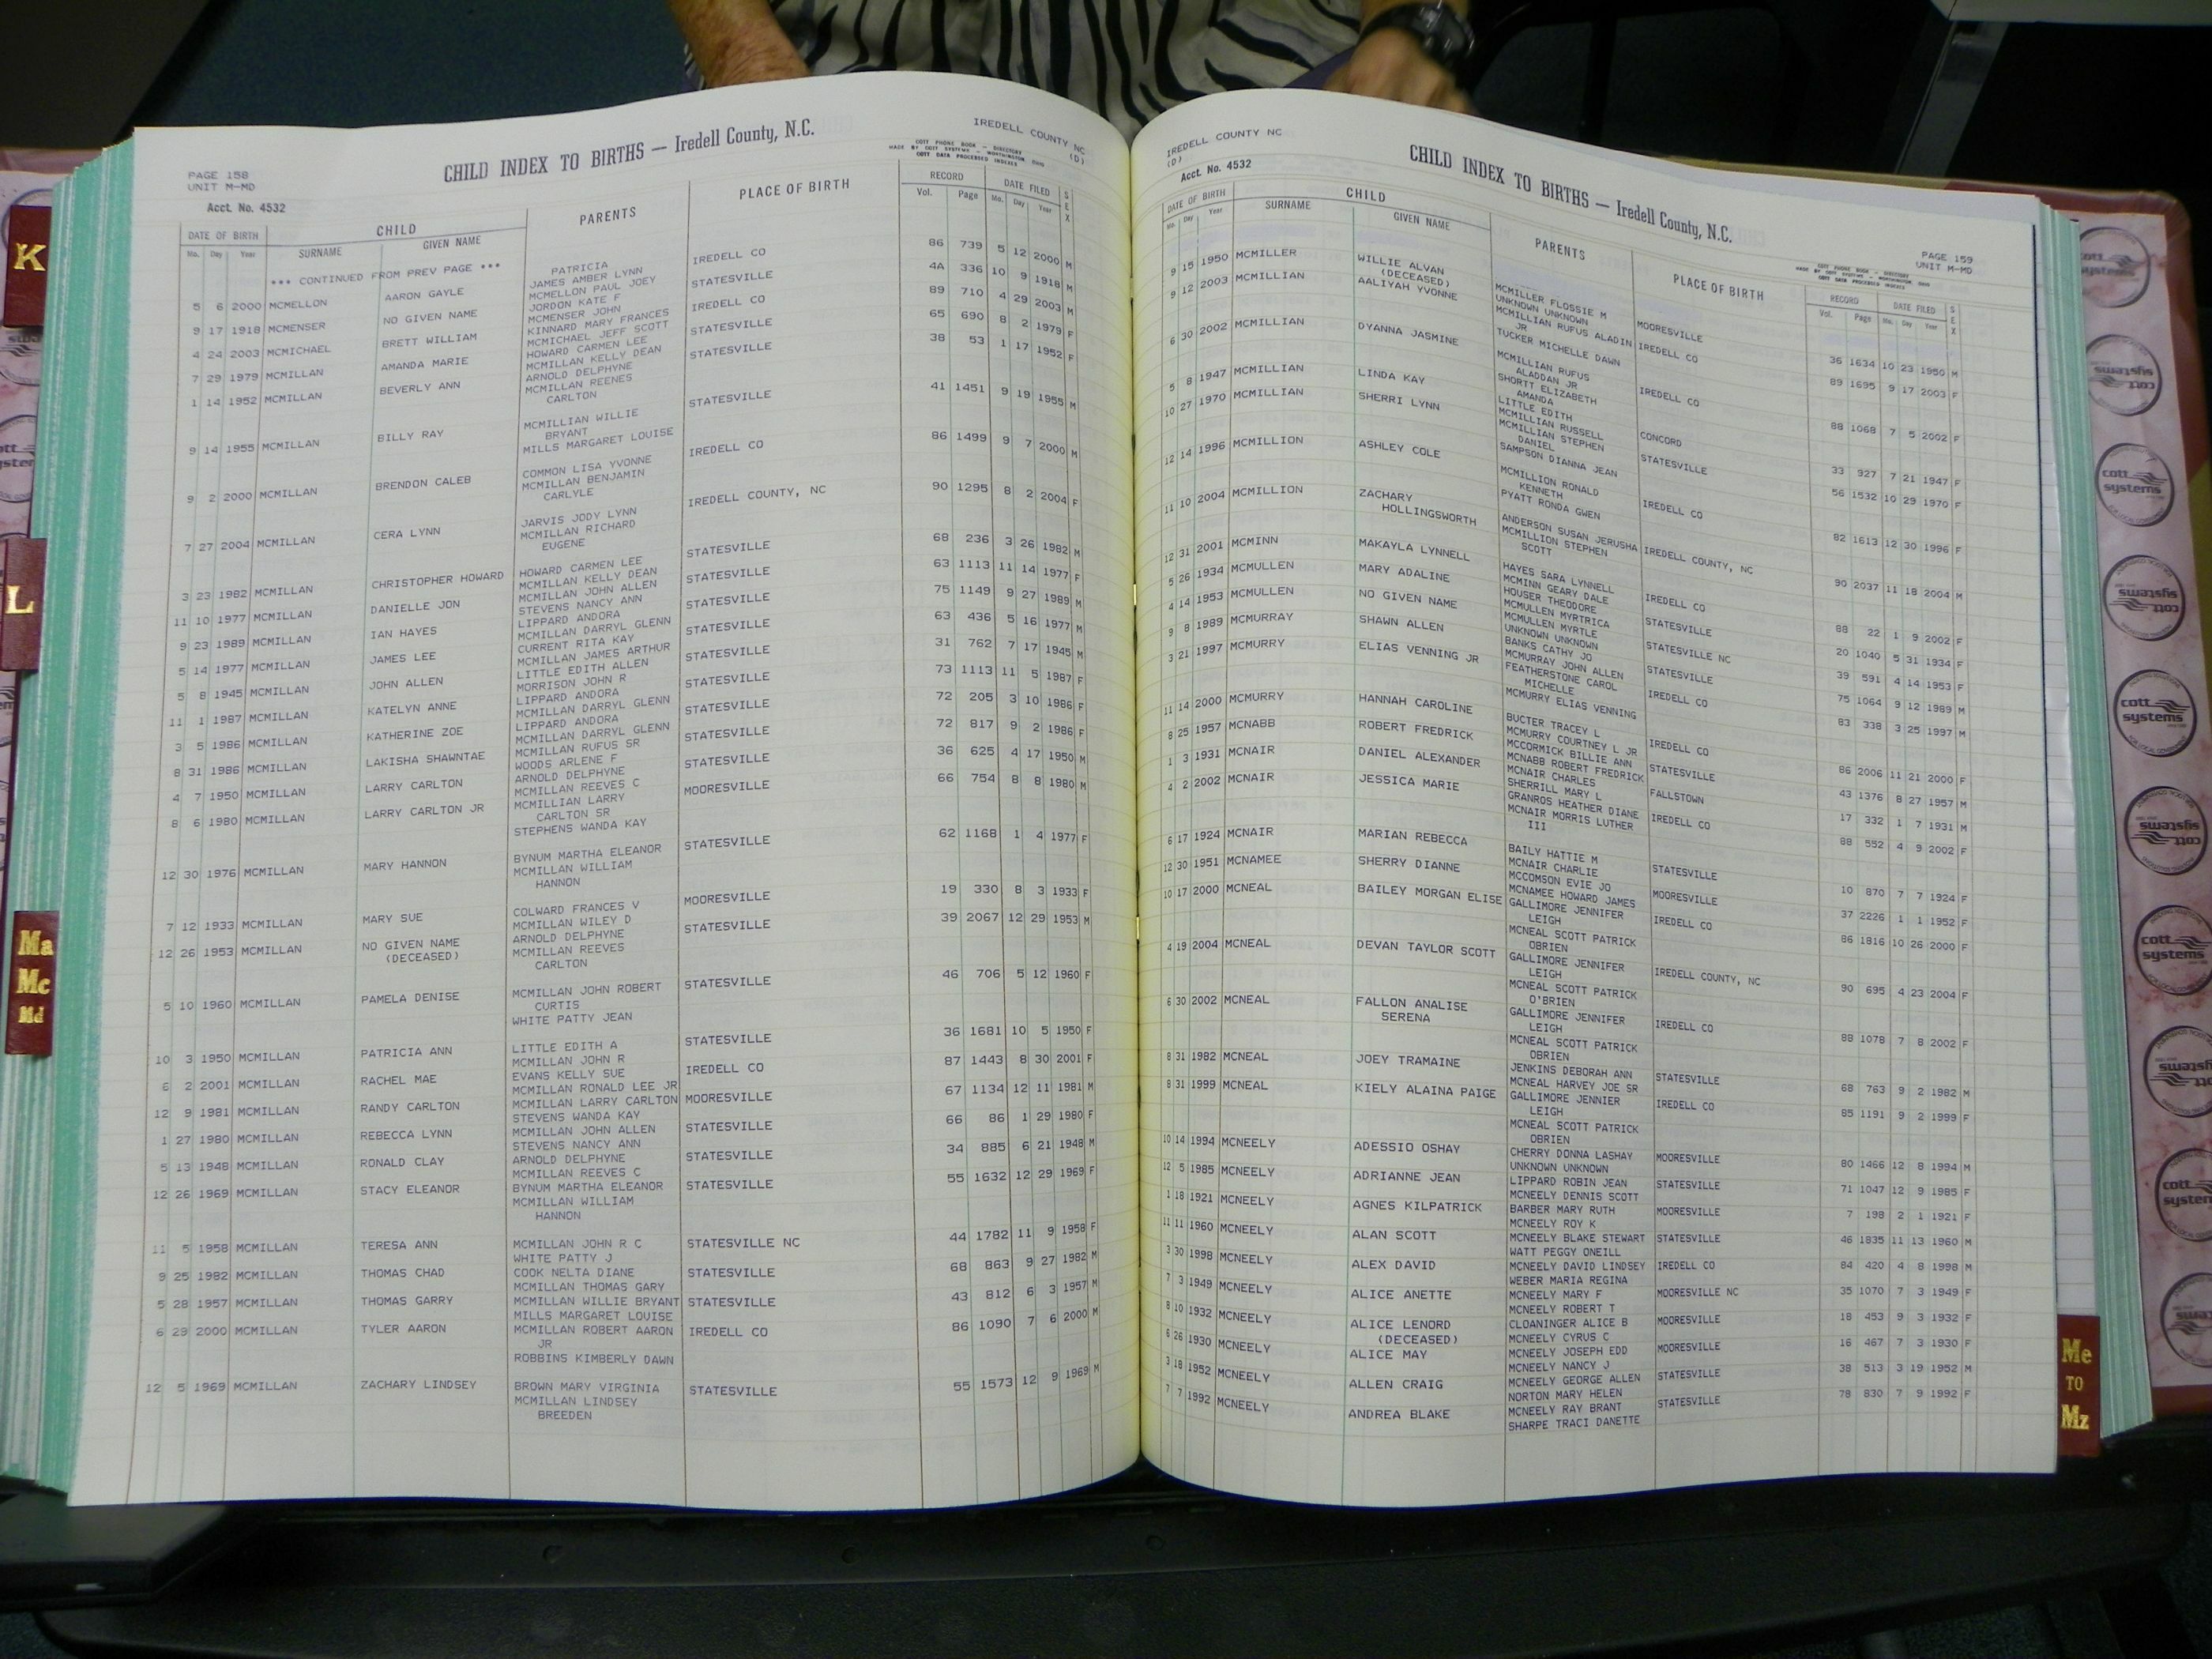 K
L
Ma
Mc
Md
PAGE 158
UNIT M-MD
Acct. No. 4532
CHILD INDEX TO BIRTHS — Iredell County, N.C.
IREDELL COUNTY NC
(D)
COTT PHONE BOOK - DIRECTORY
MADE BY COTT SYSTEMS - WORTHINGTON, OHIO
COTT DATA PROCESSED INDEXES
DATE OF BIRTH CHILD PARENTS PLACE OF BIRTH RECORD DATE FILED SEX
Mo. Day Year SURNAME GIVEN NAME Vol. Page Mo. Day Year
*** CONTINUED FROM PREV PAGE ***
PATRICIA
5 6 2000 MCMELLON AARON GAYLE JAMES AMBER LYNN IREDELL CO 86 739 5 12 2000 M
MCMELLON PAUL JOEY
9 17 1918 MCMENSER NO GIVEN NAME JORDON KATE F STATESVILLE 4A 336 10 9 1918 M
MCMENSER JOHN
4 24 2003 MCMICHAEL BRETT WILLIAM KINNARD MARY FRANCES IREDELL CO 89 710 4 29 2003 M
MCMICHAEL JEFF SCOTT
7 29 1979 MCMILLAN AMANDA MARIE HOWARD CARMEN LEE STATESVILLE 65 690 8 2 1979 F
MCMILLAN KELLY DEAN
1 14 1952 MCMILLAN BEVERLY ANN ARNOLD DELPHYNE STATESVILLE 38 53 1 17 1952 F
MCMILLAN REENES
CARLTON
9 14 1955 MCMILLAN BILLY RAY MCMILLIAN WILLIE STATESVILLE 41 1451 9 19 1955 M
BRYANT
MILLS MARGARET LOUISE
9 2 2000 MCMILLAN BRENDON CALEB COMMON LISA YVONNE IREDELL CO 86 1499 9 7 2000 M
MCMILLAN BENJAMIN
CARLYLE
7 27 2004 MCMILLAN CERA LYNN JARVIS JODY LYNN IREDELL COUNTY, NC 90 1295 8 2 2004 F
MCMILLAN RICHARD
EUGENE
3 23 1982 MCMILLAN CHRISTOPHER HOWARD HOWARD CARMEN LEE STATESVILLE 68 236 3 26 1982 M
MCMILLAN KELLY DEAN
11 10 1977 MCMILLAN DANIELLE JON MCMILLAN JOHN ALLEN STATESVILLE 63 1113 11 14 1977 F
STEVENS NANCY ANN
9 23 1989 MCMILLAN IAN HAYES LIPPARD ANDORA STATESVILLE 75 1149 9 27 1989 M
MCMILLAN DARRYL GLENN
5 14 1977 MCMILLAN JAMES LEE CURRENT RITA KAY STATESVILLE 63 436 5 16 1977 M
MCMILLAN JAMES ARTHUR
5 8 1945 MCMILLAN JOHN ALLEN LITTLE EDITH ALLEN STATESVILLE 31 762 7 17 1945 M
MORRISON JOHN R
11 1 1987 MCMILLAN KATELYN ANNE LIPPARD ANDORA STATESVILLE 73 1113 11 5 1987 F
MCMILLAN DARRYL GLENN
3 5 1986 MCMILLAN KATHERINE ZOE LIPPARD ANDORA STATESVILLE 72 205 3 10 1986 F
MCMILLAN DARRYL GLENN
8 31 1986 MCMILLAN LAKISHA SHAWNTAE MCMILLAN RUFUS SR STATESVILLE 72 817 9 2 1986 F
WOODS ARLENE F
4 7 1950 MCMILLAN LARRY CARLTON ARNOLD DELPHYNE STATESVILLE 36 625 4 17 1950 M
MCMILLAN REEVES C
8 6 1980 MCMILLAN LARRY CARLTON JR MCMILLIAN LARRY MOORESVILLE 66 754 8 8 1980 M
CARLTON SR
STEPHENS WANDA KAY
12 30 1976 MCMILLAN MARY HANNON BYNUM MARTHA ELEANOR STATESVILLE 62 1168 1 4 1977 F
MCMILLAN WILLIAM
HANNON
7 12 1933 MCMILLAN MARY SUE COLWARD FRANCES V MOORESVILLE 19 330 8 3 1933 F
MCMILLAN WILEY D
12 26 1953 MCMILLAN NO GIVEN NAME ARNOLD DELPHYNE STATESVILLE 39 2067 12 29 1953 M
(DECEASED) MCMILLAN REEVES
CARLTON
5 10 1960 MCMILLAN PAMELA DENISE MCMILLAN JOHN ROBERT STATESVILLE 46 706 5 12 1960 F
CURTIS
WHITE PATTY JEAN
10 3 1950 MCMILLAN PATRICIA ANN LITTLE EDITH A STATESVILLE 36 1681 10 5 1950 F
MCMILLAN JOHN R
6 2 2001 MCMILLAN RACHEL MAE EVANS KELLY SUE IREDELL CO 87 1443 8 30 2001 F
MCMILLAN RONALD LEE JR
12 9 1981 MCMILLAN RANDY CARLTON MCMILLAN LARRY CARLTON MOORESVILLE 67 1134 12 11 1981 M
STEVENS WANDA KAY
1 27 1980 MCMILLAN REBECCA LYNN MCMILLAN JOHN ALLEN STATESVILLE 66 86 1 29 1980 F
STEVENS NANCY ANN
5 13 1948 MCMILLAN RONALD CLAY ARNOLD DELPHYNE STATESVILLE 34 885 6 21 1948 M
MCMILLAN REEVES C
12 26 1969 MCMILLAN STACY ELEANOR BYNUM MARTHA ELEANOR STATESVILLE 55 1632 12 29 1969 F
MCMILLAN WILLIAM
HANNON
11 5 1958 MCMILLAN TERESA ANN MCMILLAN JOHN R C STATESVILLE NC 44 1782 11 9 1958 F
WHITE PATTY J
9 25 1982 MCMILLAN THOMAS CHAD COOK NELTA DIANE STATESVILLE 68 863 9 27 1982 M
MCMILLAN THOMAS GARY
5 28 1957 MCMILLAN THOMAS GARRY MCMILLAN WILLIE BRYANT STATESVILLE 43 812 6 3 1957 M
MILLS MARGARET LOUISE
6 29 2000 MCMILLAN TYLER AARON MCMILLAN ROBERT AARON IREDELL CO 86 1090 7 6 2000 M
JR
ROBBINS KIMBERLY DAWN
12 5 1969 MCMILLAN ZACHARY LINDSEY BROWN MARY VIRGINIA STATESVILLE 55 1573 12 9 1969 M
MCMILLAN LINDSEY
BREEDEN
IREDELL COUNTY NC
(D)
Acct. No. 4532
CHILD INDEX TO BIRTHS — Iredell County, N.C.
PAGE 159
UNIT M-MD
COTT PHONE BOOK - DIRECTORY
MADE BY COTT SYSTEMS - WORTHINGTON, OHIO
COTT DATA PROCESSED INDEXES
DATE OF BIRTH CHILD PARENTS PLACE OF BIRTH RECORD DATE FILED SEX
Mo. Day Year SURNAME GIVEN NAME Vol. Page Mo. Day Year
9 15 1950 MCMILLER WILLIE ALVAN MCMILLER FLOSSIE M MOORESVILLE 36 1634 10 23 1950 M
(DECEASED) UNKNOWN UNKNOWN
9 12 2003 MCMILLIAN AALIYAH YVONNE MCMILLIAN RUFUS ALADIN IREDELL CO 89 1695 9 17 2003 F
JR
TUCKER MICHELLE DAWN
6 30 2002 MCMILLIAN DYANNA JASMINE MCMILLIAN RUFUS IREDELL CO 88 1068 7 5 2002 F
ALADDAN JR
SHORTT ELIZABETH
AMANDA
5 8 1947 MCMILLIAN LINDA KAY LITTLE EDITH CONCORD 33 927 7 21 1947 F
MCMILLIAN RUSSELL
10 27 1970 MCMILLIAN SHERRI LYNN MCMILLIAN STEPHEN STATESVILLE 56 1532 10 29 1970 F
DANIEL
SAMPSON DIANNA JEAN
12 14 1996 MCMILLION ASHLEY COLE MCMILLION RONALD IREDELL CO 82 1613 12 30 1996 F
KENNETH
PYATT RONDA GWEN
11 10 2004 MCMILLION ZACHARY ANDERSON SUSAN JERUSHA IREDELL COUNTY, NC 90 2037 11 18 2004 M
HOLLINGSWORTH MCMILLION STEPHEN
SCOTT
12 31 2001 MCMINN MAKAYLA LYNNELL HAYES SARA LYNNELL IREDELL CO 88 22 1 9 2002 F
MCMINN GEARY DALE
5 26 1934 MCMULLEN MARY ADALINE HOUSER THEODORE STATESVILLE 20 1040 5 31 1934 F
MCMULLEN MYRTRICA
4 14 1953 MCMULLEN NO GIVEN NAME MCMULLEN MYRTLE STATESVILLE NC 39 591 4 14 1953 F
UNKNOWN UNKNOWN
9 8 1989 MCMURRAY SHAWN ALLEN BANKS CATHY JO STATESVILLE 75 1064 9 12 1989 M
MCMURRAY JOHN ALLEN
3 21 1997 MCMURRY ELIAS VENNING JR FEATHERSTONE CAROL IREDELL CO 83 338 3 25 1997 M
MICHELLE
MCMURRY ELIAS VENNING
11 14 2000 MCMURRY HANNAH CAROLINE BUCTER TRACEY L IREDELL CO 86 2006 11 21 2000 F
MCMURRY COURTNEY L JR
8 25 1957 MCNABB ROBERT FREDRICK MCCORMICK BILLIE ANN STATESVILLE 43 1376 8 27 1957 M
MCNABB ROBERT FREDRICK
1 3 1931 MCNAIR DANIEL ALEXANDER MCNAIR CHARLES FALLSTOWN 17 332 1 7 1931 M
SHERRILL MARY L
4 2 2002 MCNAIR JESSICA MARIE GRANROS HEATHER DIANE IREDELL CO 88 552 4 9 2002 F
MCNAIR MORRIS LUTHER
III
6 17 1924 MCNAIR MARIAN REBECCA BAILY HATTIE M STATESVILLE 10 870 7 7 1924 F
MCNAIR CHARLIE
12 30 1951 MCNAMEE SHERRY DIANNE MCCOMSON EVIE JO MOORESVILLE 37 2226 1 1 1952 F
MCNAMEE HOWARD JAMES
10 17 2000 MCNEAL BAILEY MORGAN ELISE GALLIMORE JENNIFER IREDELL CO 86 1816 10 26 2000 F
LEIGH
MCNEAL SCOTT PATRICK
OBRIEN
4 19 2004 MCNEAL DEVAN TAYLOR SCOTT GALLIMORE JENNIFER IREDELL COUNTY, NC 90 695 4 23 2004 F
LEIGH
MCNEAL SCOTT PATRICK
O'BRIEN
6 30 2002 MCNEAL FALLON ANALISE GALLIMORE JENNIFER IREDELL CO 88 1078 7 8 2002 F
SERENA LEIGH
MCNEAL SCOTT PATRICK
OBRIEN
8 31 1982 MCNEAL JOEY TRAMAINE JENKINS DEBORAH ANN STATESVILLE 68 763 9 2 1982 M
MCNEAL HARVEY JOE SR
8 31 1999 MCNEAL KIELY ALAINA PAIGE GALLIMORE JENNIER IREDELL CO 85 1191 9 2 1999 F
LEIGH
MCNEAL SCOTT PATRICK
OBRIEN
10 14 1994 MCNEELY ADESSIO OSHAY CHERRY DONNA LASHAY MOORESVILLE 80 1466 12 8 1994 M
UNKNOWN UNKNOWN
12 5 1985 MCNEELY ADRIANNE JEAN LIPPARD ROBIN JEAN STATESVILLE 71 1047 12 9 1985 F
MCNEELY DENNIS SCOTT
1 18 1921 MCNEELY AGNES KILPATRICK BARBER MARY RUTH MOORESVILLE 7 198 2 1 1921 F
MCNEELY ROY K
11 11 1960 MCNEELY ALAN SCOTT MCNEELY BLAKE STEWART STATESVILLE 46 1835 11 13 1960 M
WATT PEGGY ONEILL
3 30 1998 MCNEELY ALEX DAVID MCNEELY DAVID LINDSEY IREDELL CO 84 420 4 8 1998 M
WEBER MARIA REGINA
7 3 1949 MCNEELY ALICE ANETTE MCNEELY MARY F MOORESVILLE NC 35 1070 7 3 1949 F
MCNEELY ROBERT T
8 10 1932 MCNEELY ALICE LENORD CLOANINGER ALICE B MOORESVILLE 18 453 9 3 1932 F
(DECEASED) MCNEELY CYRUS C
6 26 1930 MCNEELY ALICE MAY MCNEELY JOSEPH EDD MOORESVILLE 16 467 7 3 1930 F
MCNEELY NANCY J
3 18 1952 MCNEELY ALLEN CRAIG MCNEELY GEORGE ALLEN STATESVILLE 38 513 3 19 1952 M
NORTON MARY HELEN
7 7 1992 MCNEELY ANDREA BLAKE MCNEELY RAY BRANT STATESVILLE 78 830 7 9 1992 F
SHARPE TRACI DANETTE
Me
TO
Mz
cott
systems
cott
systems
cott
systems
cott
systems